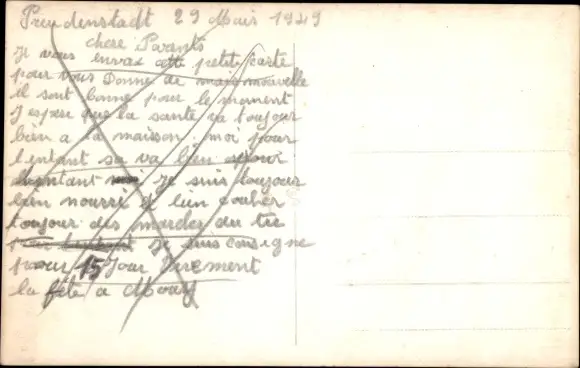 Freudenstadt 29 Mais 1949
chere Parents
Je vous envax cette petite carte
pour vous Donne de mais nouvelle
il sont bonne pour le moment
J espere que la sante va toujour
bien a la maison, moi pour
l entant sa va bien
Je suis toujour
bien nourri et bien coucher
toujour des marches du tir
Je suis consigne
pour 15 Jour Virement
la fête a